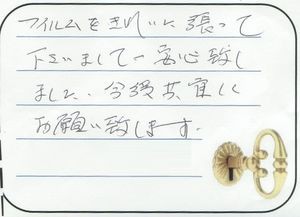 フイルムをきれいに張って
下さいまして一安心致し
ました、今後共宜しく
お願い致します.